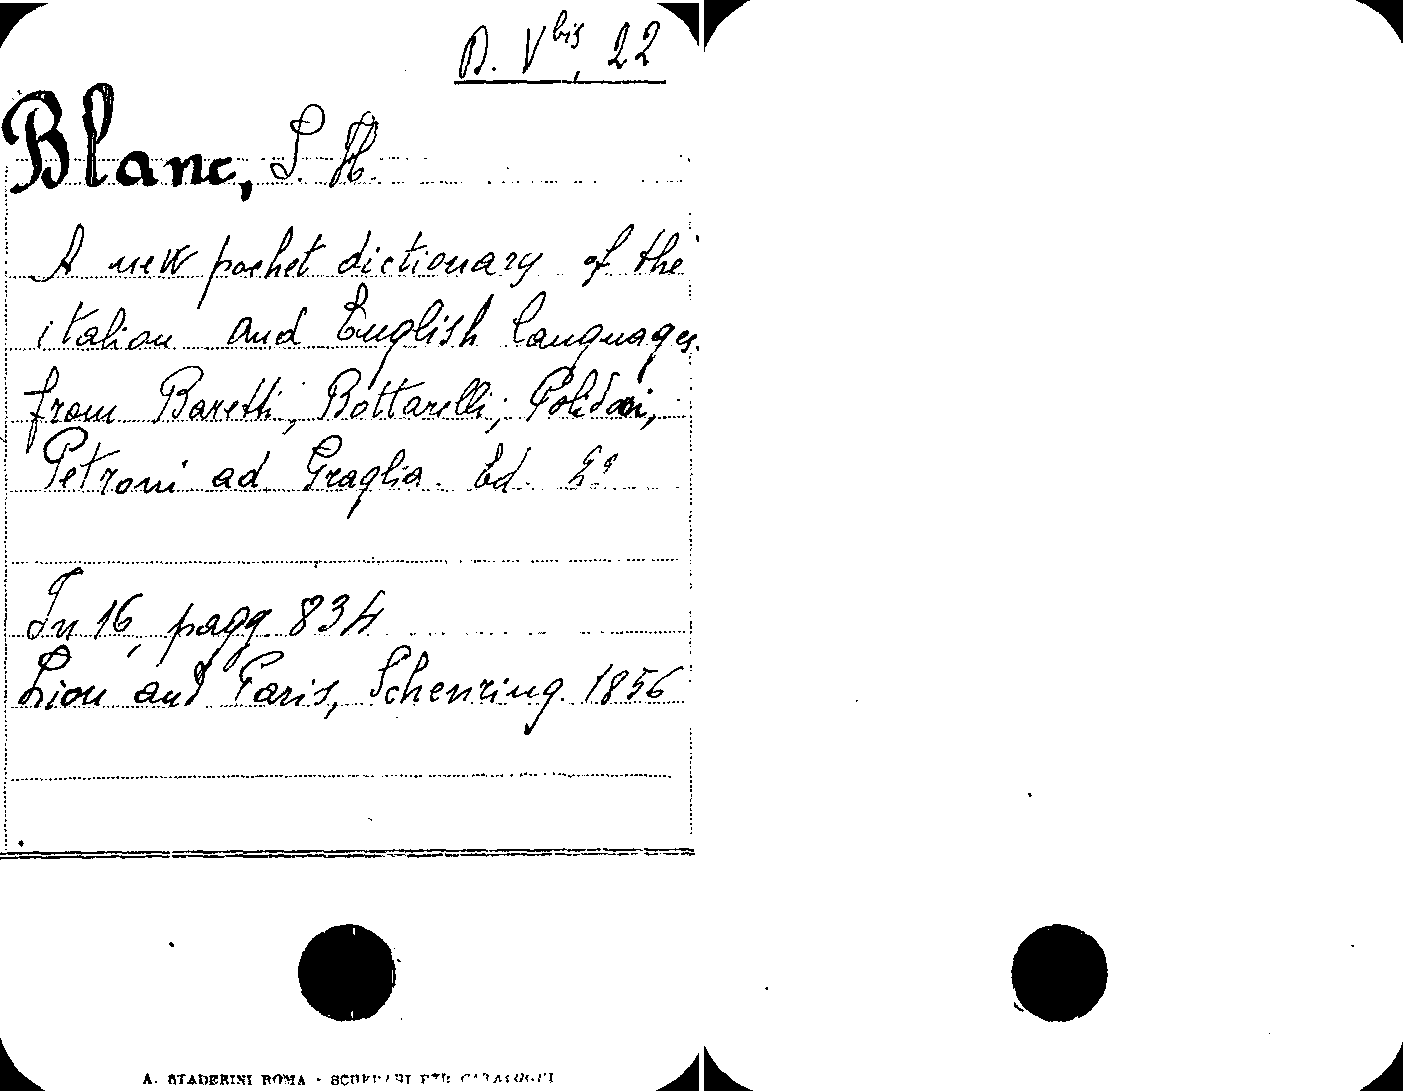 B. V bis, 22
Blanc, S. H.
A new pocket dictionary of the
italian and English languages.
from Baretti, Bottarelli, Polidori,
Petroni ad Graglia. Ed. 2ª
In 16, pagg. 834
Lion and Paris, Schenring. 1856
A. STADERINI ROMA - SCHEDARI PER CATALOGHI